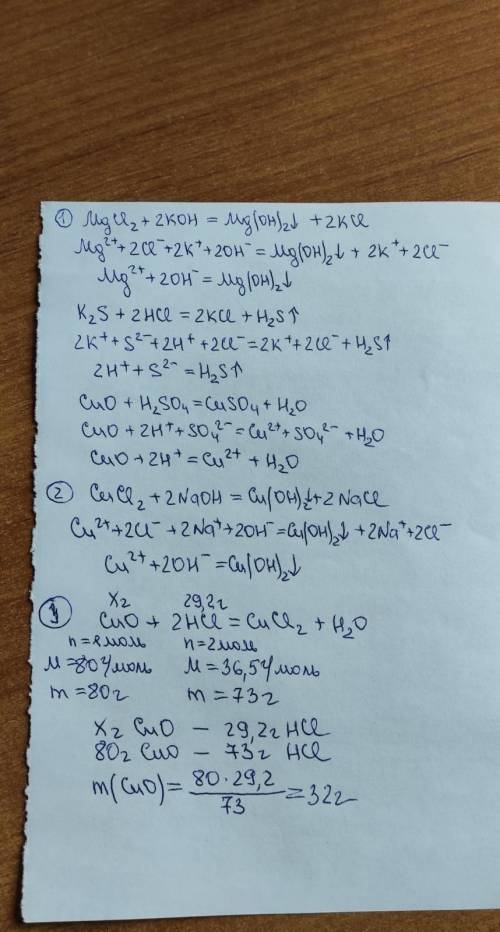 ① MgCl₂ + 2KOH = Mg(OH)₂↓ + 2KCl
Mg²⁺ + 2Cl⁻ + 2K⁺ + 2OH⁻ = Mg(OH)₂↓ + 2K⁺ + 2Cl⁻
Mg²⁺ + 2OH⁻ = Mg(OH)₂↓
K₂S + 2HCl = 2KCl + H₂S↑
2K⁺ + S²⁻ + 2H⁺ + 2Cl⁻ = 2K⁺ + 2Cl⁻ + H₂S↑
2H⁺ + S²⁻ = H₂S↑
CuO + H₂SO₄ = CuSO₄ + H₂O
CuO + 2H⁺ + SO₄²⁻ = Cu²⁺ + SO₄²⁻ + H₂O
CuO + 2H⁺ = Cu²⁺ + H₂O
② CuCl₂ + 2NaOH = Cu(OH)₂↓ + 2NaCl
Cu²⁺ + 2Cl⁻ + 2Na⁺ + 2OH⁻ = Cu(OH)₂↓ + 2Na⁺ + 2Cl⁻
Cu²⁺ + 2OH⁻ = Cu(OH)₂↓
xг 29,2г
CuO + 2HCl = CuCl₂ + H₂O
n=1моль n=2моль
M=80г/моль M=36,5г/моль
m=80г m=73г
xг CuO – 29,2г HCl
80г CuO – 73г HCl
m(CuO) = 80·29,2 / 73 = 32г